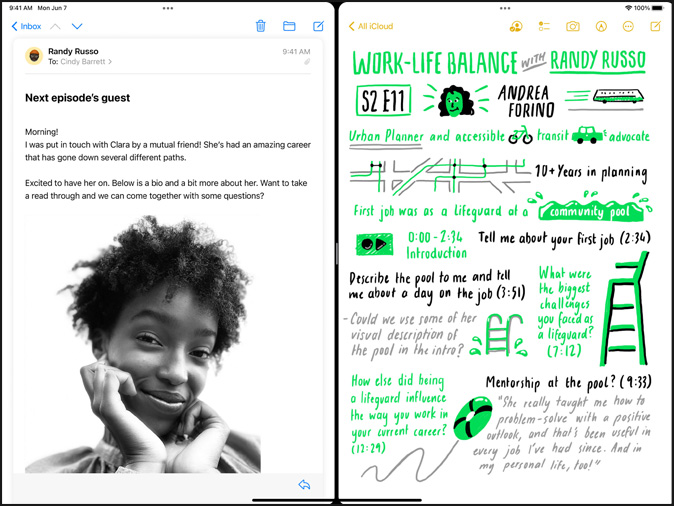 9:41 AM Mon Jun 7
Inbox
Randy Russo
9:41 AM
To: Cindy Barrett
Next episode's guest
Morning!
I was put in touch with Clara by a mutual friend! She's had an amazing career
that has gone down several different paths.
Excited to have her on. Below is a bio and a bit more about her. Want to take
a read through and we can come together with some questions?
100%
All iCloud
WORK-LIFE BALANCE with RANDY RUSSO
S2 E11
ANDREA
FORINO
Urban Planner and accessible transit advocate
10+ Years in planning
First job was as a lifeguard at a community pool
0:00 - 2:34
Introduction
Tell me about your first job (2:34)
Describe the pool to me and tell
me about a day on the job (3:51)
- Could we use some of her
visual description of
the pool in the intro?
What were
the biggest
challenges
you faced as
a lifeguard?
(7:12)
How else did being
a lifeguard influence
the way you work in
your current career?
(12:29)
Mentorship at the pool? (9:33)
"She really taught me how to
problem-solve with a positive
outlook, and that's been useful in
every job I've had since. And in
my personal life, too!"